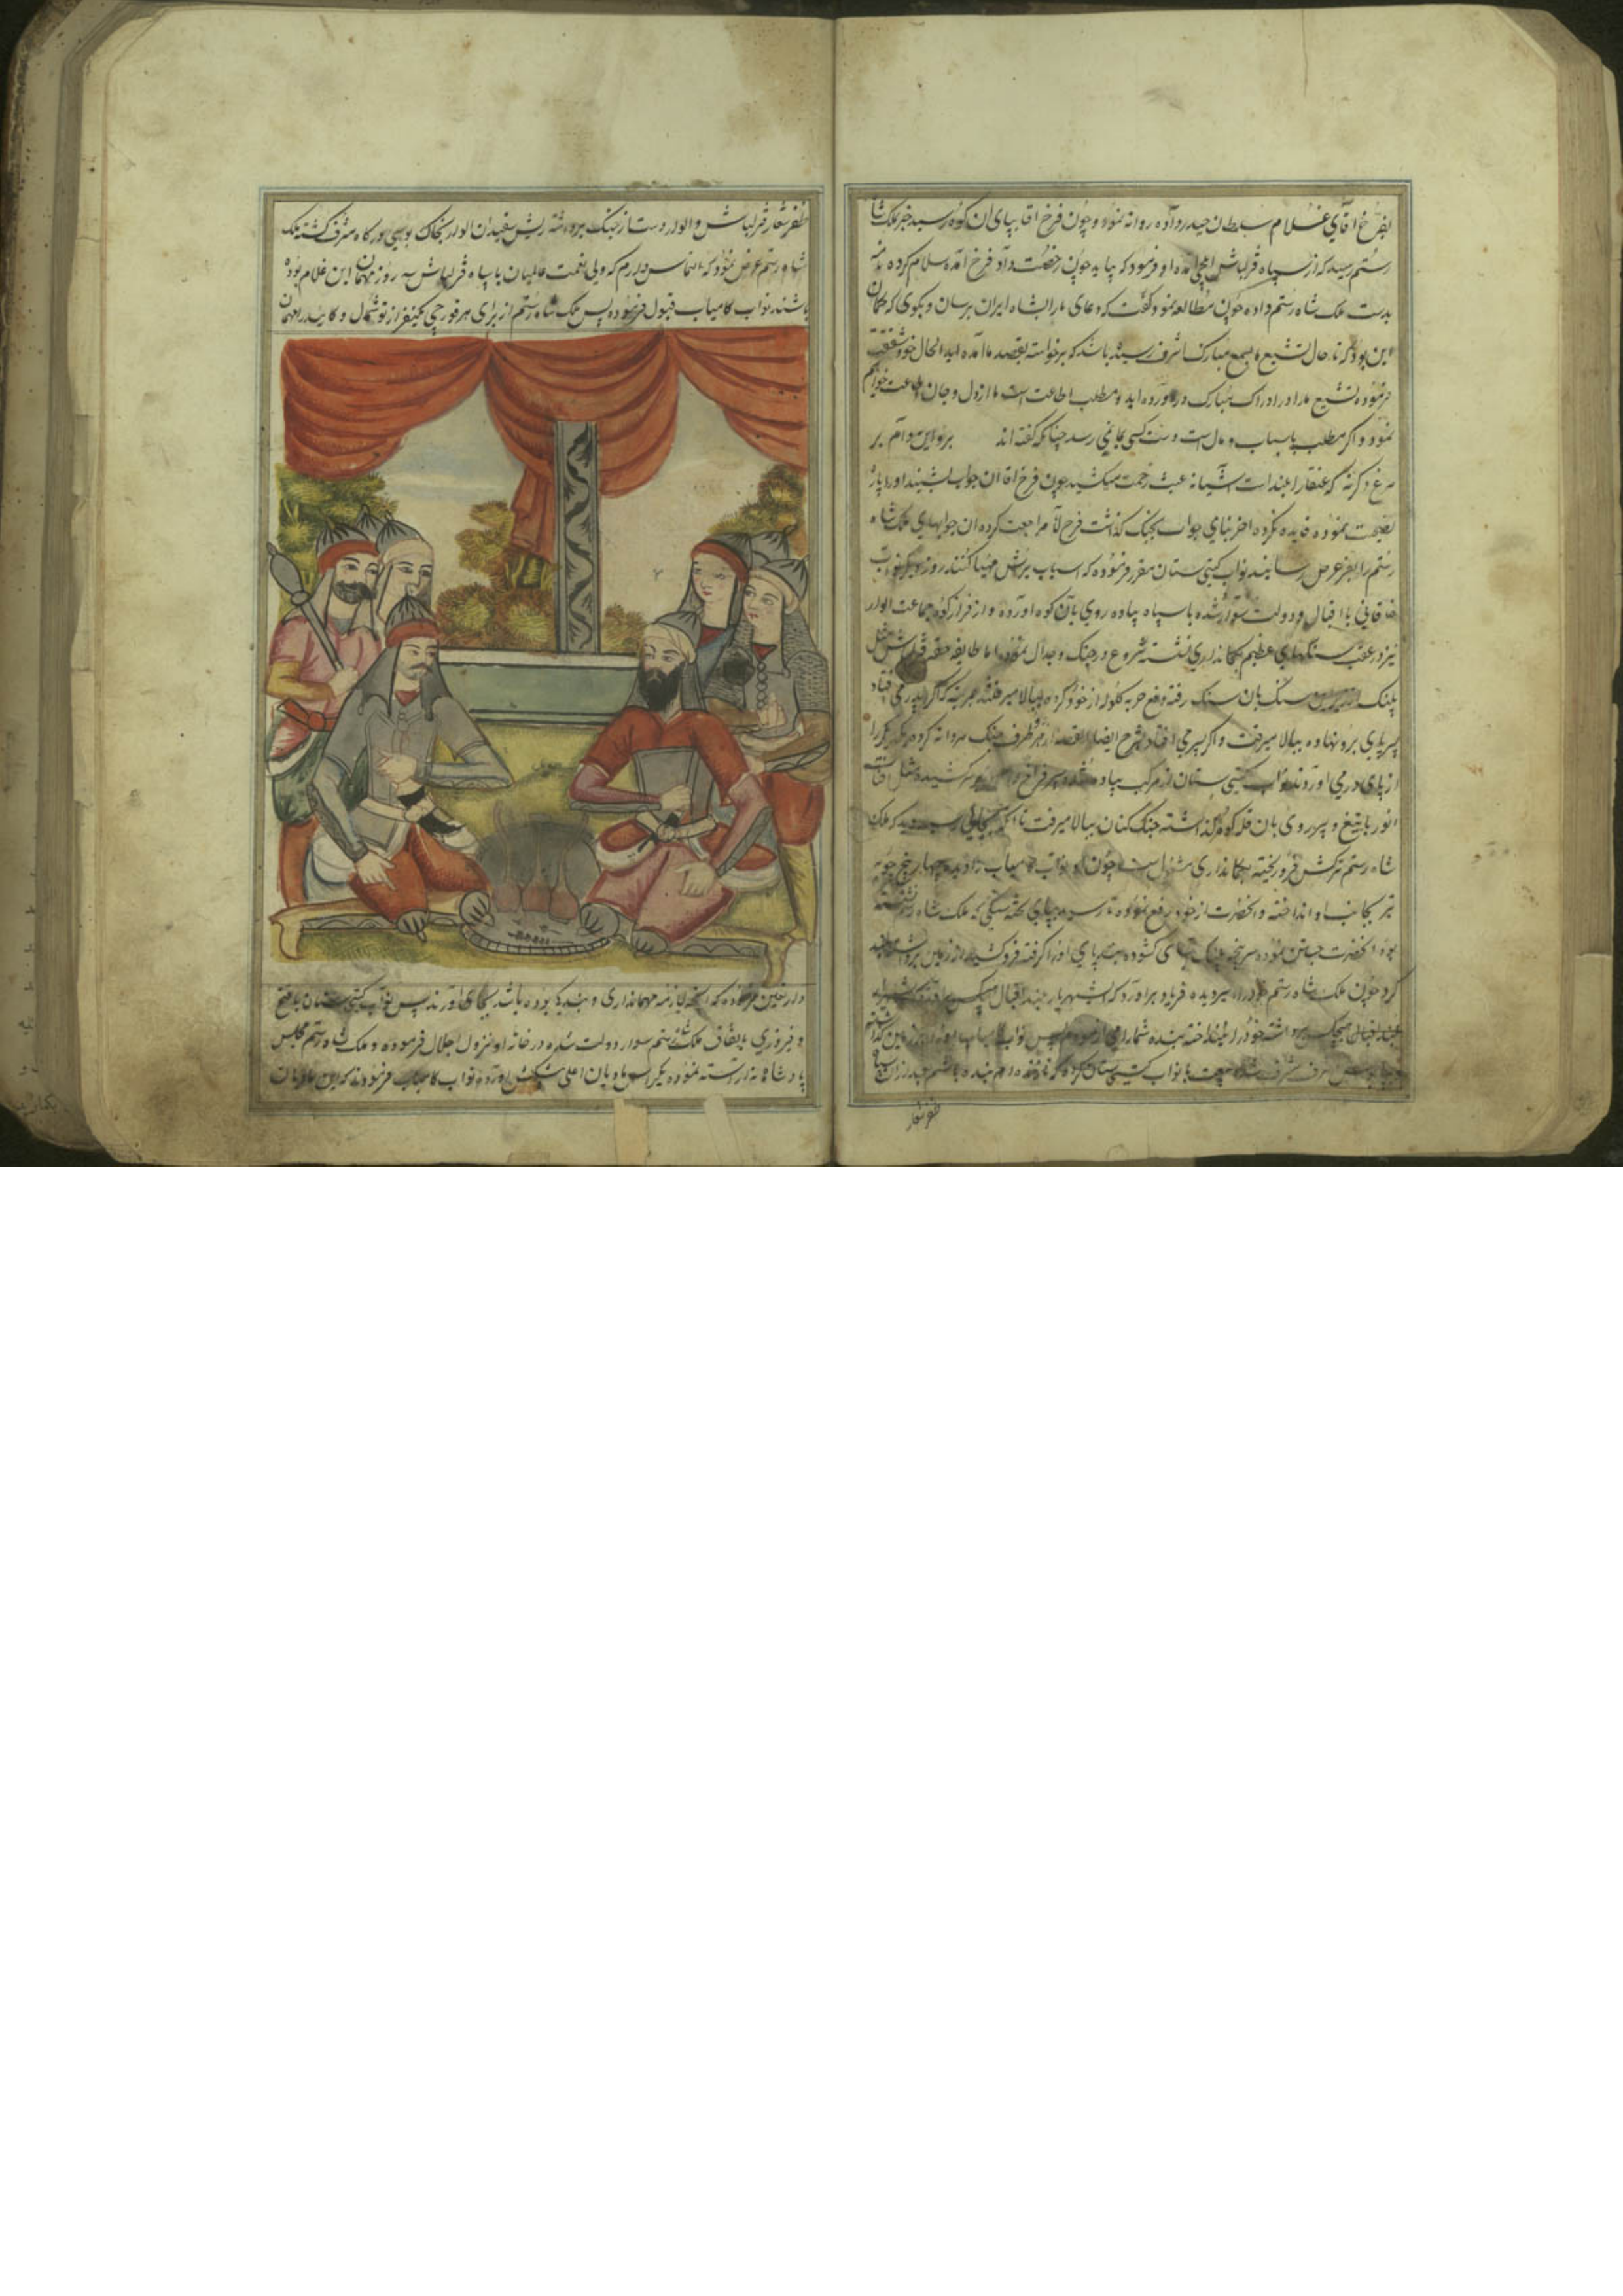 بفرخ اقای غلام سلطان حیدر داده روانه نمود و چون فرخ اقا بپای ان کوه رسید خبر بملک شاه
رستم رسید که از سپاه قزلباش ایلچی امده او فرمود که بیاید چون رخصت داد فرخ آمده سلام کرده نامه
بدست ملک شاه رستم داده چون مطالعه نمود گفت که دعای ما را بشاه ایران برسان و بگوی که گمان
این بود که تا حال تشیع ما بسمع مبارک اشرف رسیده باشد که برخواسته بقصد ما آمده اید الحال خود شفقت
فرموده تشیع ما را در ادراک مبارک در آورده اید و مطلب اطاعت است ما از دل و جان اطاعت خواهیم
نمود و اگر مطلب باسباب و مال است دست کسی بجائی نمی رسد چنانکه گفته اند برو این دام بر
مرغ دگر نه که عنقا را بلند است آشیانه عبث زحمت میکشید چون فرخ اقا ان جواب بشنید او را پاره
نصیحت نموده فایده نکرده اخر بنای جواب بجنگ گذاشت فرخ اقا مراجعت کرده ان جوابهای ملک شاه
رستم را بعز عرض رسانیدند نواب گیتی ستان مقرر فرموده که اسباب یرش مهیا کنند روز دیگر نواب
خاقانی با اقبال و دولت سوار شده با سپاه پیاده روی بآن کوه اورده و از فراز کوه جماعت الوار
نیز در عقب سنگهای عظیم بکمانداری نشسته شروع در جنگ و جدال نموده اما طایفه
پلنگ سنگ بان سنگ رفته دفع حربه گلوله از خود کرده ببالا میرفتند بمرتبه که اگر پدر می افتاد
پسر پای برو نهاده ببالا میرفت و اگر پسر می افتاد شرح ایضا القصه از هر طرف جنگ مردانه کرده یکدیگر را
از پای در می اوردند نواب گیتی ستان از مرکب پیاده شده سپر فراخ دامن بر سر کشیده مثل افتاب
انور با تیغ و سپر روی بان قله کوه گذاشته جنگ کنان ببالا میرفت تا انکه بجایی رسید دید که ملک
شاه رستم ترکش فرو ریخته بکمانداری مشغول است چون او نواب کامیاب را دید چهار پنج چوبه
تیر بجانب او انداخته و انحضرت از خود رفع نموده تا رسید بپای تخته سنگی که ملک شاه رستم نشسته
بود انحضرت جستن نموده سرپنجه پلنگ گشوده بند پای او را گرفته فرو کشید از زمین برداشته بلند
کرد چون ملک شاه رستم خود را اسیر دیده فریاد براورد که ای شهریار بلند اقبال
بلند اقبالی برداشته خود را بلند انداخته بنده شما را می ازمودم پس نواب کامیاب او را بر زمین گذاشته
شرف مشرف شده با نواب گیتی ستان کرده که تا زنده ام بنده باشم بعد از ان سپاه
ظفر شعار
ظفر شعار قزلباش و الوار دست از جنگ برداشته ریش سفیدان الوار بخاک بوسی درگاه مشرف گشته ملک
شاه رستم عرض نمود که التماس دارم که ولی نعمت عالمیان با سپاه قزلباش سه روز مهمان این غلام بوده
باشند نواب کامیاب قبول فرموده پس ملک شاه رستم از برای هر قورچی یکنفر از توشمال و کایید را مهمان
دار تعین فرموده که انچه لازمه مهمانداری و بندگی بوده باشد بجای اورند پس نواب گیتی ستان با فتح
و فیروزی باتفاق ملک شاه رستم سوار دولت شده در خانه او نزول اجلال فرموده و ملک شاه رستم مجلس
پادشاهانه اراسته نموده یکراس مادیان اعلی پیشکش اورده نواب کامیاب فرمودند که این مادیان